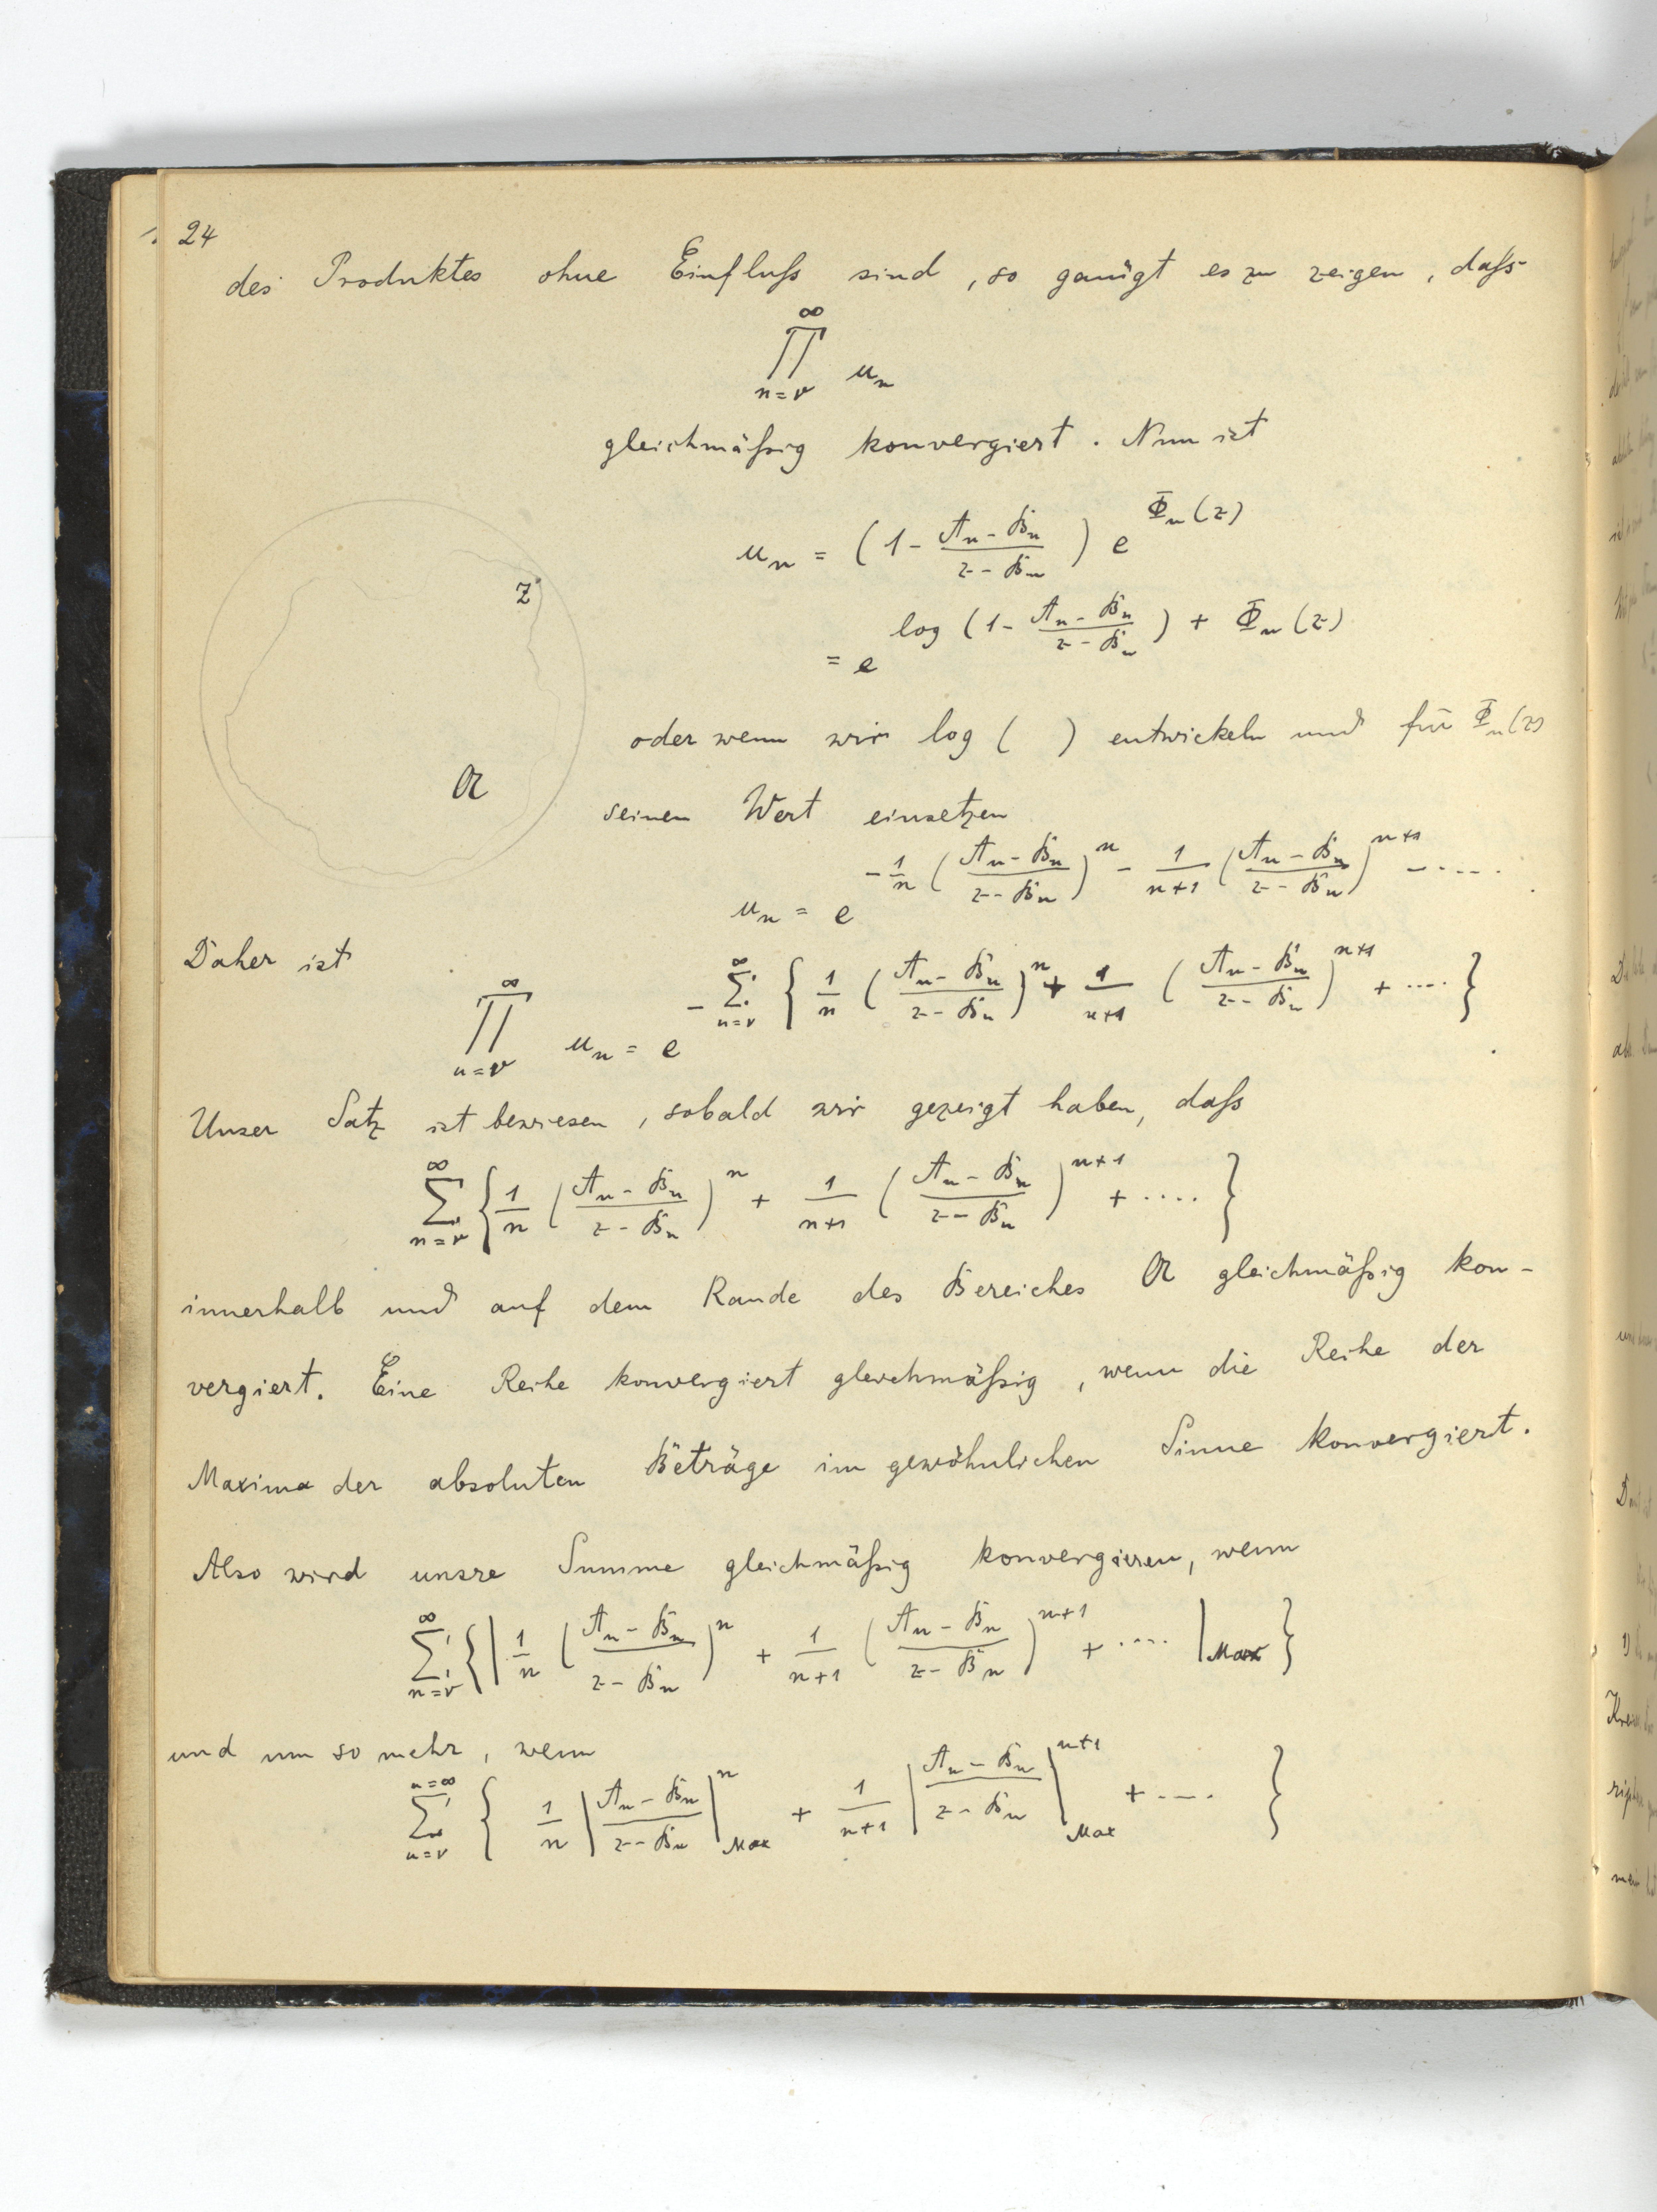 24
des Produktes ohne Einfluß sind, so genügt es zu zeigen, daß
∏_{n=ν}^{∞} u_n
gleichmäßig konvergiert. Nun ist
u_n = (1 - (A_n - B_n)/(z - B_n)) e^{Φ_n(z)}
= e^{log (1 - (A_n - B_n)/(z - B_n)) + Φ_n(z)}
z
oder wenn wir log ( ) entwickeln und für Φ_n(z)
𝔄
seinen Wert einsetzen
u_n = e^{-1/n ((A_n - B_n)/(z - B_n))^n - 1/(n+1) ((A_n - B_n)/(z - B_n))^{n+1} - ....}
Daher ist
∏_{n=ν}^{∞} u_n = e^{-∑_{n=ν}^{∞} { 1/n ((A_n - B_n)/(z - B_n))^n + 1/(n+1) ((A_n - B_n)/(z - B_n))^{n+1} + .... }}
Unser Satz ist bewiesen, sobald wir gezeigt haben, daß
∑_{n=ν}^{∞} { 1/n ((A_n - B_n)/(z - B_n))^n + 1/(n+1) ((A_n - B_n)/(z - B_n))^{n+1} + .... }
innerhalb und auf dem Rande des Bereiches 𝔄 gleichmäßig kon-
vergiert. Eine Reihe konvergiert gleichmäßig, wenn die Reihe der
Maxima der absoluten Beträge im gewöhnlichen Sinne konvergiert.
Also wird unsre Summe gleichmäßig konvergieren, wenn
∑_{n=ν}^{∞} { | 1/n ((A_n - B_n)/(z - B_n))^n + 1/(n+1) ((A_n - B_n)/(z - B_n))^{n+1} + .... |_{Max} }
und um so mehr, wenn
∑_{n=ν}^{n=∞} { 1/n |(A_n - B_n)/(z - B_n)|^n_{Max} + 1/(n+1) |(A_n - B_n)/(z - B_n)|^{n+1}_{Max} + .... }